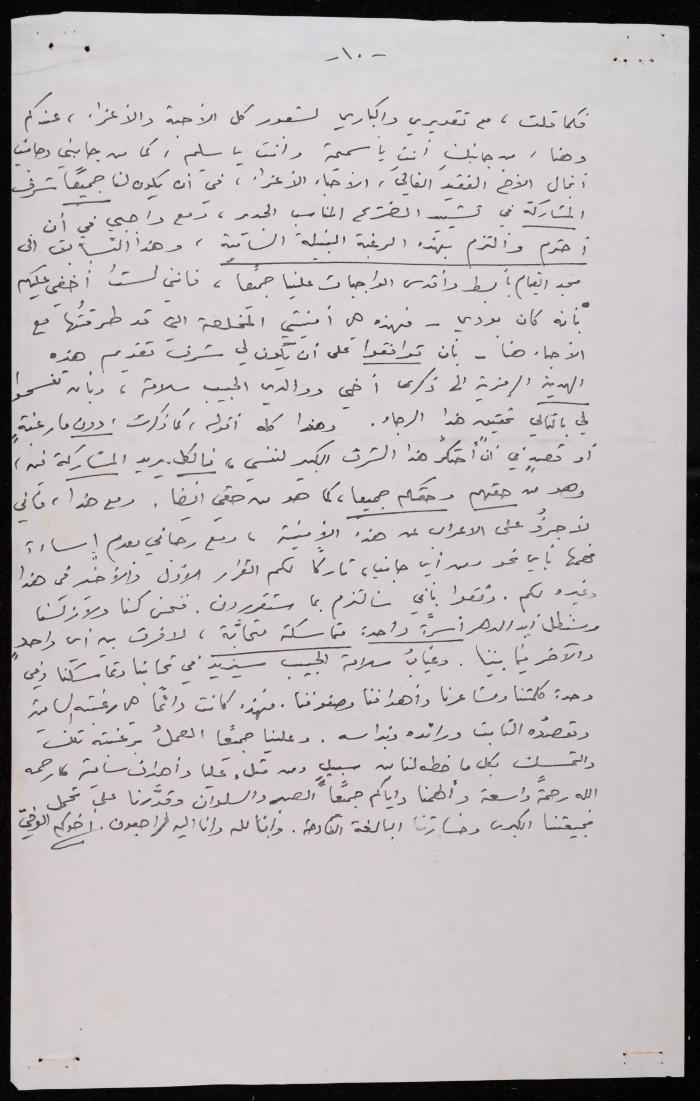 -١٠-
فكما قلت ، مع تقديري وإكباري لشعور كل الأحبة والأعزاء ، عندكم
وهنا ، من جانبكِ أنتِ يا سميحة وأنت يا سليم ، كما من جانبي وجانب
أنجال الأخ الفقيد الغالي ، الأحباء الأعزاء ، في أن يكون لنا جميعاً شرف
المشاركة في تشييد الضريح المناسب الجدير ، ومع واجبي في أن
أحترم وألتزم بهذه الرغبة النبيلة السامية ، وهذا التسابق الى
مجد القيام بأبسط وأقدس الواجبات علينا جميعاً ، فانني لستُ أخفي عليكم
بأنه كان بودي - فهذه هي أمنيتي المخلصة التي قد طرقتُها مع
الأحباء هنا - بأن توافقوا على أن يكون لي شرف تقديم هذه
الهدية الرمزية الى ذكرى أخي ووالدي الحبيب سلامة ، وبأن تفسحوا
لي بالتالي تحقيق هذا الرجاء . وهذا كله أقوله ، كما ذكرت ، دون ما رغبةٍ
أو قصدٍ في أن أحتكر هذا الشرف الكبير لنفسي ، فالكل يريد المشاركة فيه ،
وهو من حقهم وحقكم جميعاً ، كما هو من حقي أيضا . ومع هذا ، فاني
لأجرؤ على الاعراب عن هذه الأمنية ، ومع رجائي بعدم إساءة
فهمها بأي نحو ومن أي جانب ، تاركاً لكم القرار الأول والأخير في هذا
وغيره لكم . وثقوا بأني سألتزم بما ستقررون . فنحن كنا ولا زلنا
وسنظل أبد الدهر أسرةً واحدة متماسكة متحابّة ، لا فرق بين أي واحدٍ
والآخر فيما بيننا . وغيابُ سلامة الحبيب سيزيد في تحاببنا وتماسكنا وفي
وحدة كلمتنا ومشاعرنا وأهدافنا وصفوفنا . فهذه كانت دائما هي رغبته السامية
وقصدُه الثابت ورائده ونبراسه . وعلينا جميعاً العملُ برغبته تلك
والتمسك بكل ما خطه لنا من سبيلٍ ومن مثلٍ عليا وأهداف سامية . رحمه
الله رحمةً واسعة وألهمنا وإياكم جميعاً الصبر والسلوان وقدَّرنا على تحمل
فجيعتنا الكبرى وخسارتنا البالغة الفادحة . وإنا لله وإنا اليه لراجعون . أخوكم الوفيّ